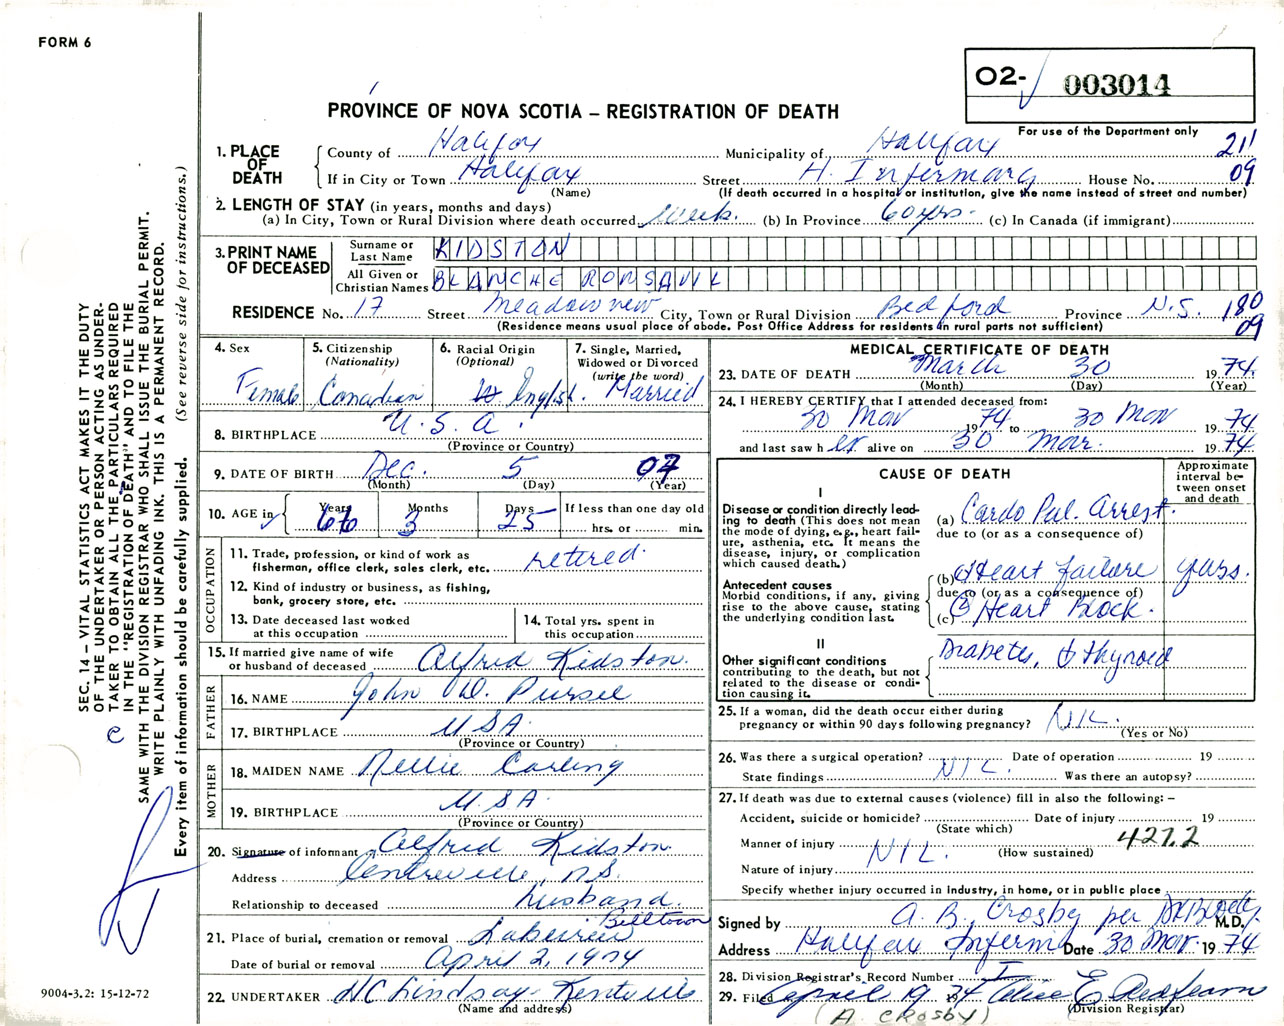 FORM 6
O2- 003014
PROVINCE OF NOVA SCOTIA – REGISTRATION OF DEATH
For use of the Department only
1. PLACE OF DEATH
County of Halifax Municipality of Halifax 211
If in City or Town Halifax Street H. Infermary House No. 09
(Name) (If death occurred in a hospital or institution, give the name instead of street and number)
2. LENGTH OF STAY (in years, months and days)
(a) In City, Town or Rural Division where death occurred week. (b) In Province 60 yrs. (c) In Canada (if immigrant)
3. PRINT NAME OF DECEASED
Surname or Last Name KIDSTON
All Given or Christian Names BLANCHE
RESIDENCE No. 17 Street Meadowview City, Town or Rural Division Bedford Province N.S. 180
(Residence means usual place of abode. Post Office Address for residents in rural parts not sufficient) 09
4. Sex Female
5. Citizenship (Nationality) Canadian
6. Racial Origin (Optional) English.
7. Single, Married, Widowed or Divorced (write the word) Married
8. BIRTHPLACE U.S.A.
(Province or Country)
9. DATE OF BIRTH Dec. 5 07
(Month) (Day) (Year)
10. AGE in Years 66 Months 3 Days 25 If less than one day old hrs. or min.
OCCUPATION
11. Trade, profession, or kind of work as fisherman, office clerk, sales clerk, etc. retired.
12. Kind of industry or business, as fishing, bank, grocery store, etc.
13. Date deceased last worked at this occupation
14. Total yrs. spent in this occupation
15. If married give name of wife or husband of deceased Alfred Kidston.
FATHER
16. NAME John W.
17. BIRTHPLACE USA
(Province or Country)
MOTHER
18. MAIDEN NAME Nellie Carling
19. BIRTHPLACE U.S.A.
(Province or Country)
20. Signature of informant Alfred Kidston.
Address Centreville, N.S.
Relationship to deceased husband.
21. Place of burial, cremation or removal Lakeview Belltown
Date of burial or removal April 2, 1974
22. UNDERTAKER Lindsay Kentville
(Name and address)
MEDICAL CERTIFICATE OF DEATH
23. DATE OF DEATH March 30 1974.
(Month) (Day) (Year)
24. I HEREBY CERTIFY that I attended deceased from:
30 Mar 1974 to 30 Mar 1974
and last saw h er alive on 30 Mar. 1974
CAUSE OF DEATH
Approximate interval between onset and death
I
Disease or condition directly leading to death (This does not mean the mode of dying, e.g., heart failure, asthenia, etc. It means the disease, injury, or complication which caused death.)
(a) Cardo Pul. Arrest.
due to (or as a consequence of)
Antecedent causes
Morbid conditions, if any, giving rise to the above cause, stating the underlying condition last.
(b) Heart failure years.
due to (or as a consequence of)
(c) Heart Block.
II
Other significant conditions contributing to the death, but not related to the disease or condition causing it.
Diabetes, thyroid
25. If a woman, did the death occur either during pregnancy or within 90 days following pregnancy? NIL.
(Yes or No)
26. Was there a surgical operation? Date of operation 19
State findings NIL. Was there an autopsy?
27. If death was due to external causes (violence) fill in also the following: –
Accident, suicide or homicide? Date of injury 19
(State which)
Manner of injury NIL. (How sustained) 427.2
Nature of injury
Specify whether injury occurred in industry, in home, or in public place
Signed by A. B. Crosby per M.D.
Address Halifax Inferm Date 30 Mar. 1974
28. Division Registrar's Record Number
29. Filed April 19 1974 Alice E Redfearn
(Division Registrar)
(A. CROSBY)
SEC. 14 – VITAL STATISTICS ACT MAKES IT THE DUTY
OF THE UNDERTAKER OR PERSON ACTING AS UNDER-
TAKER TO OBTAIN ALL THE PARTICULARS REQUIRED
IN THE "REGISTRATION OF DEATH" AND TO FILE THE
SAME WITH THE DIVISION REGISTRAR WHO SHALL ISSUE THE BURIAL PERMIT.
WRITE PLAINLY WITH UNFADING INK. THIS IS A PERMANENT RECORD.
Every item of information should be carefully supplied. (See reverse side for instructions.)
9004-3.2: 15-12-72